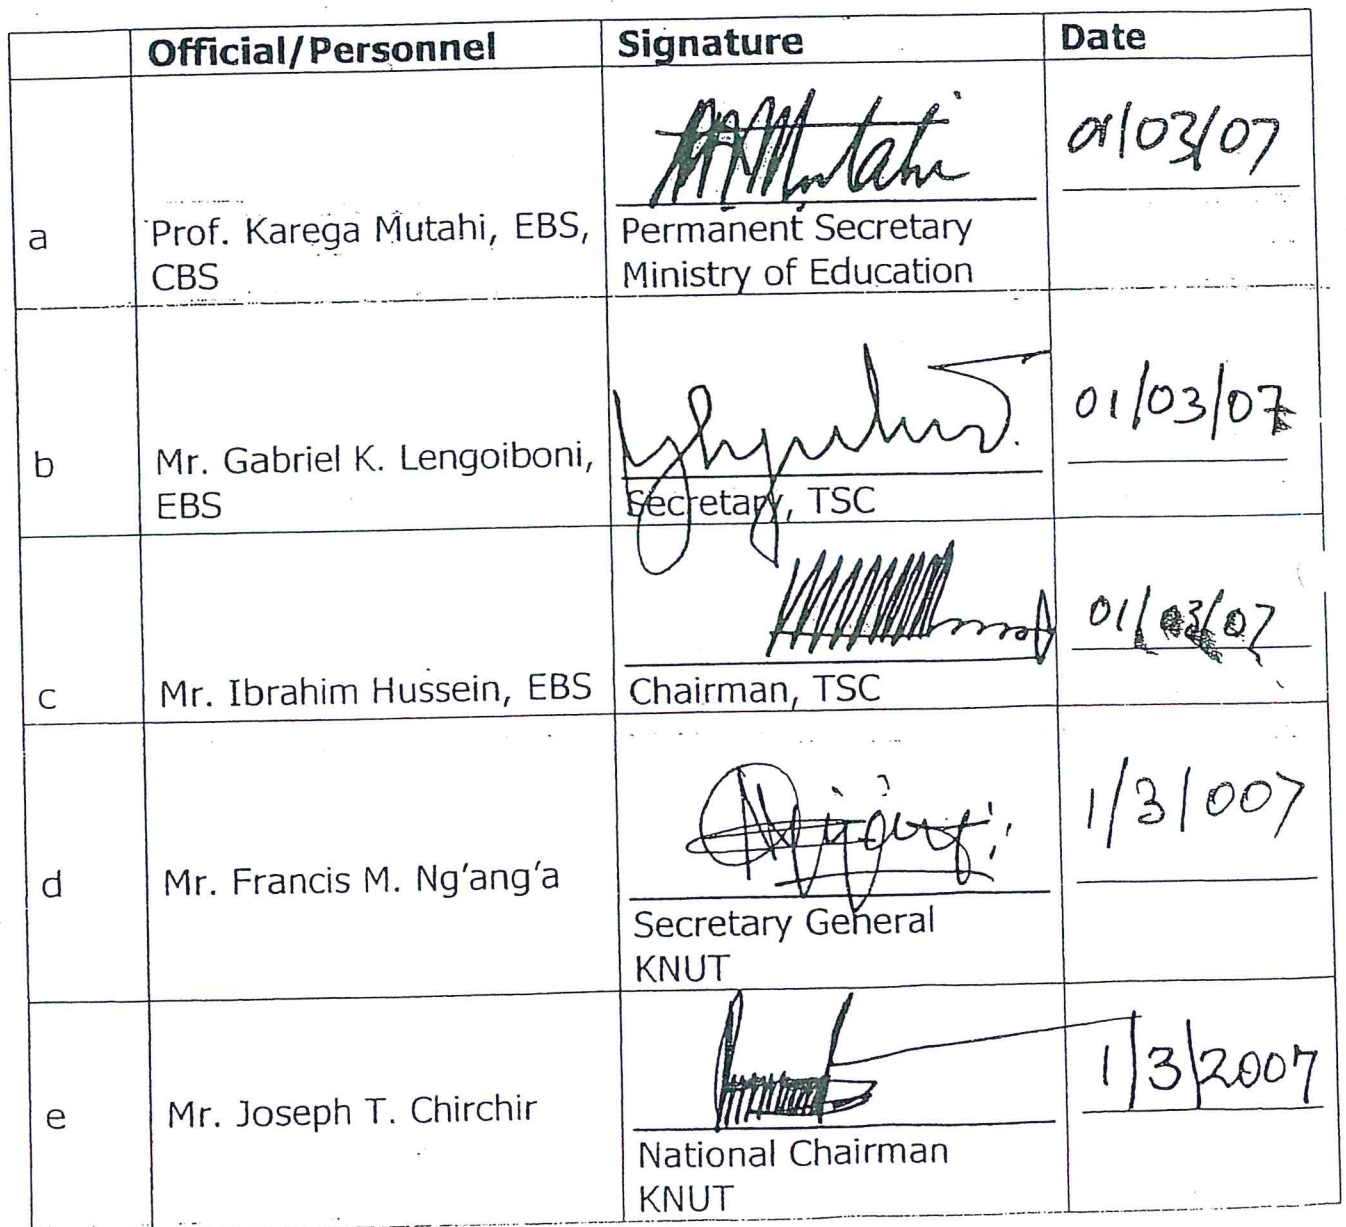 Official/Personnel Signature Date
01/03/07
a Prof. Karega Mutahi, EBS, Permanent Secretary
CBS Ministry of Education
01/03/07
b Mr. Gabriel K. Lengoiboni,
EBS Secretary, TSC
01/03/07
c Mr. Ibrahim Hussein, EBS Chairman, TSC
1/3/007
d Mr. Francis M. Ng'ang'a
Secretary General
KNUT
1/3/2007
e Mr. Joseph T. Chirchir
National Chairman
KNUT